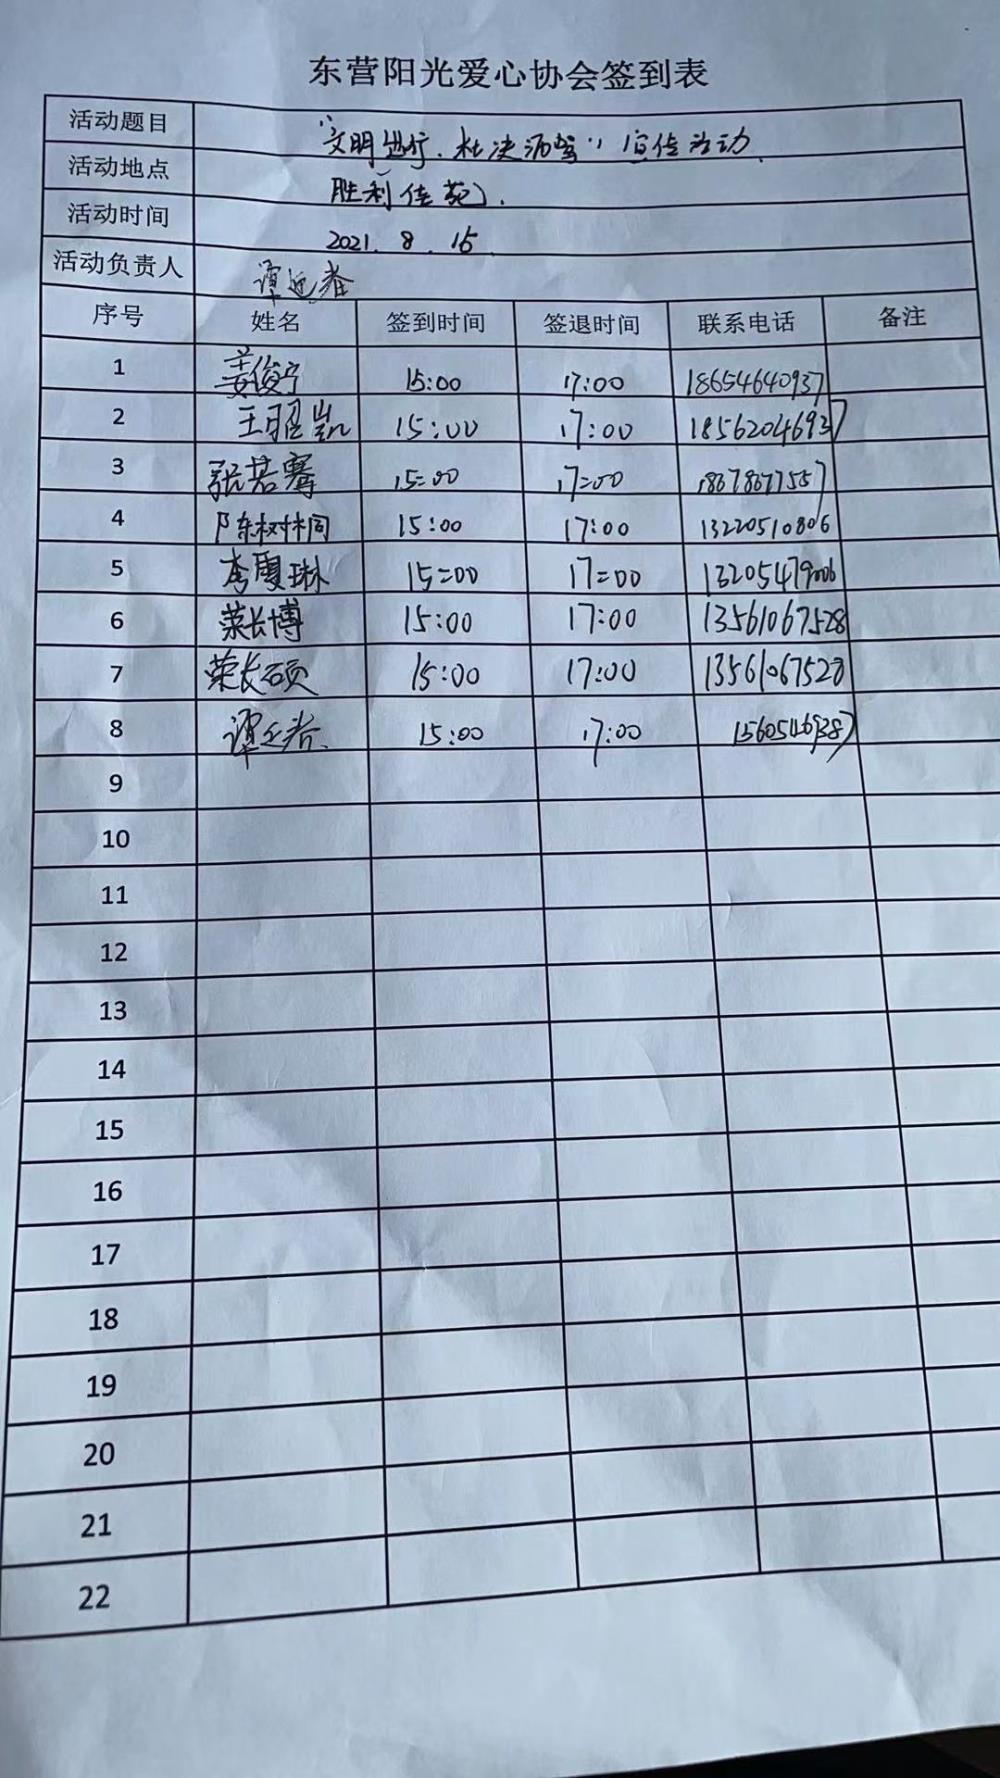 东营阳光爱心协会签到表
活动题目 “文明出行、杜绝酒驾”宣传活动
活动地点 胜利佳苑
活动时间 2021.8.15
活动负责人
序号 姓名 签到时间 签退时间 联系电话 备注
1 姜俊宁 15:00 17:00 18654640937
2 王昭凯 15:00 17:00 18562046937
3 张若骞 15:00 17:00 18678677557
4 陈树桐 15:00 17:00 13220510806
5 李夏琳 15:00 17:00
6 荣长博 15:00 17:00 13561067528
7 荣长硕 15:00 17:00 13561067528
8 15:00 17:00
9
10
11
12
13
14
15
16
17
18
19
20
21
22